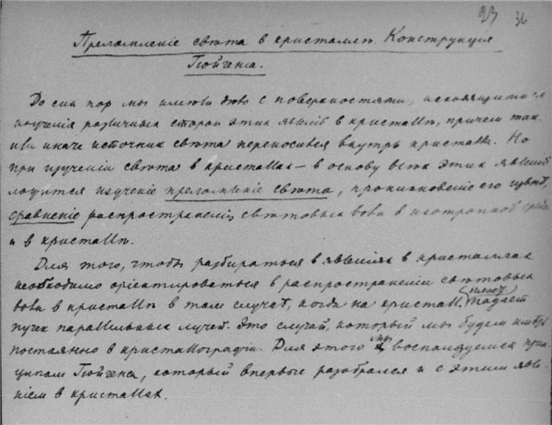 23 36
Преломленіе свѣта в кристаллѣ. Конструкція
Гюйгенса.
До сих пор мы имѣли дѣло с поверхностями,
изученія различных сторон этих явленій в кристаллѣ, причем так
или иначе источник свѣта переносился внутрь кристалла. Но
при изученіи свѣта в кристаллах – в основу всѣх этих явленій
ложится изученіе преломленія свѣта, проникновеніе его извнѣ,
сравненіе распространенія свѣтовых волн в изотропной средѣ
и в кристаллѣ.
Для того, чтобы разбираться в явленіях в кристаллах
необходимо оріентироваться в распространеніи свѣтовых
волн в кристаллѣ в том случаѣ, когда на кристалл падает
пучек параллельных лучей. Это случай, который мы будем имѣть
постоянно в кристаллографіи. Для этого мы воспользуемся прин-
ципом Гюйгенса, который впервые разобрался и с этим явле-
ніем в кристаллах.